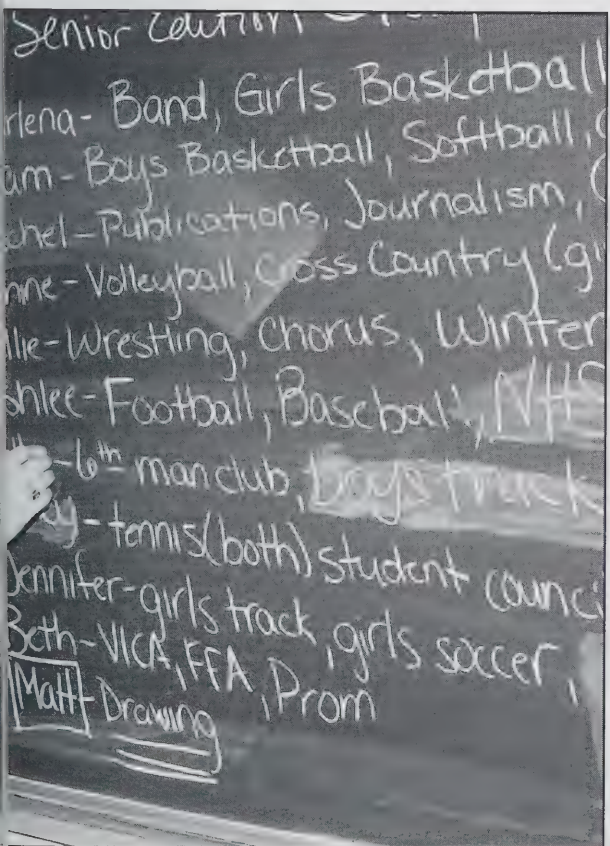 Senior Edition
rlena- Band, Girls Basketball
am- Boys Basketball, Softball,
chel-Publications, Journalism, (
nne-Volleyball, Cross Country (gi
llie-Wrestling, Chorus, Winter
shlee-Football, Baseball, NHS
-6th man club, boys track
y-tennis(both) student counci
Jennifer-girls track, girls soccer,
Beth-VICA, FFA, Prom
Matt-Drawing